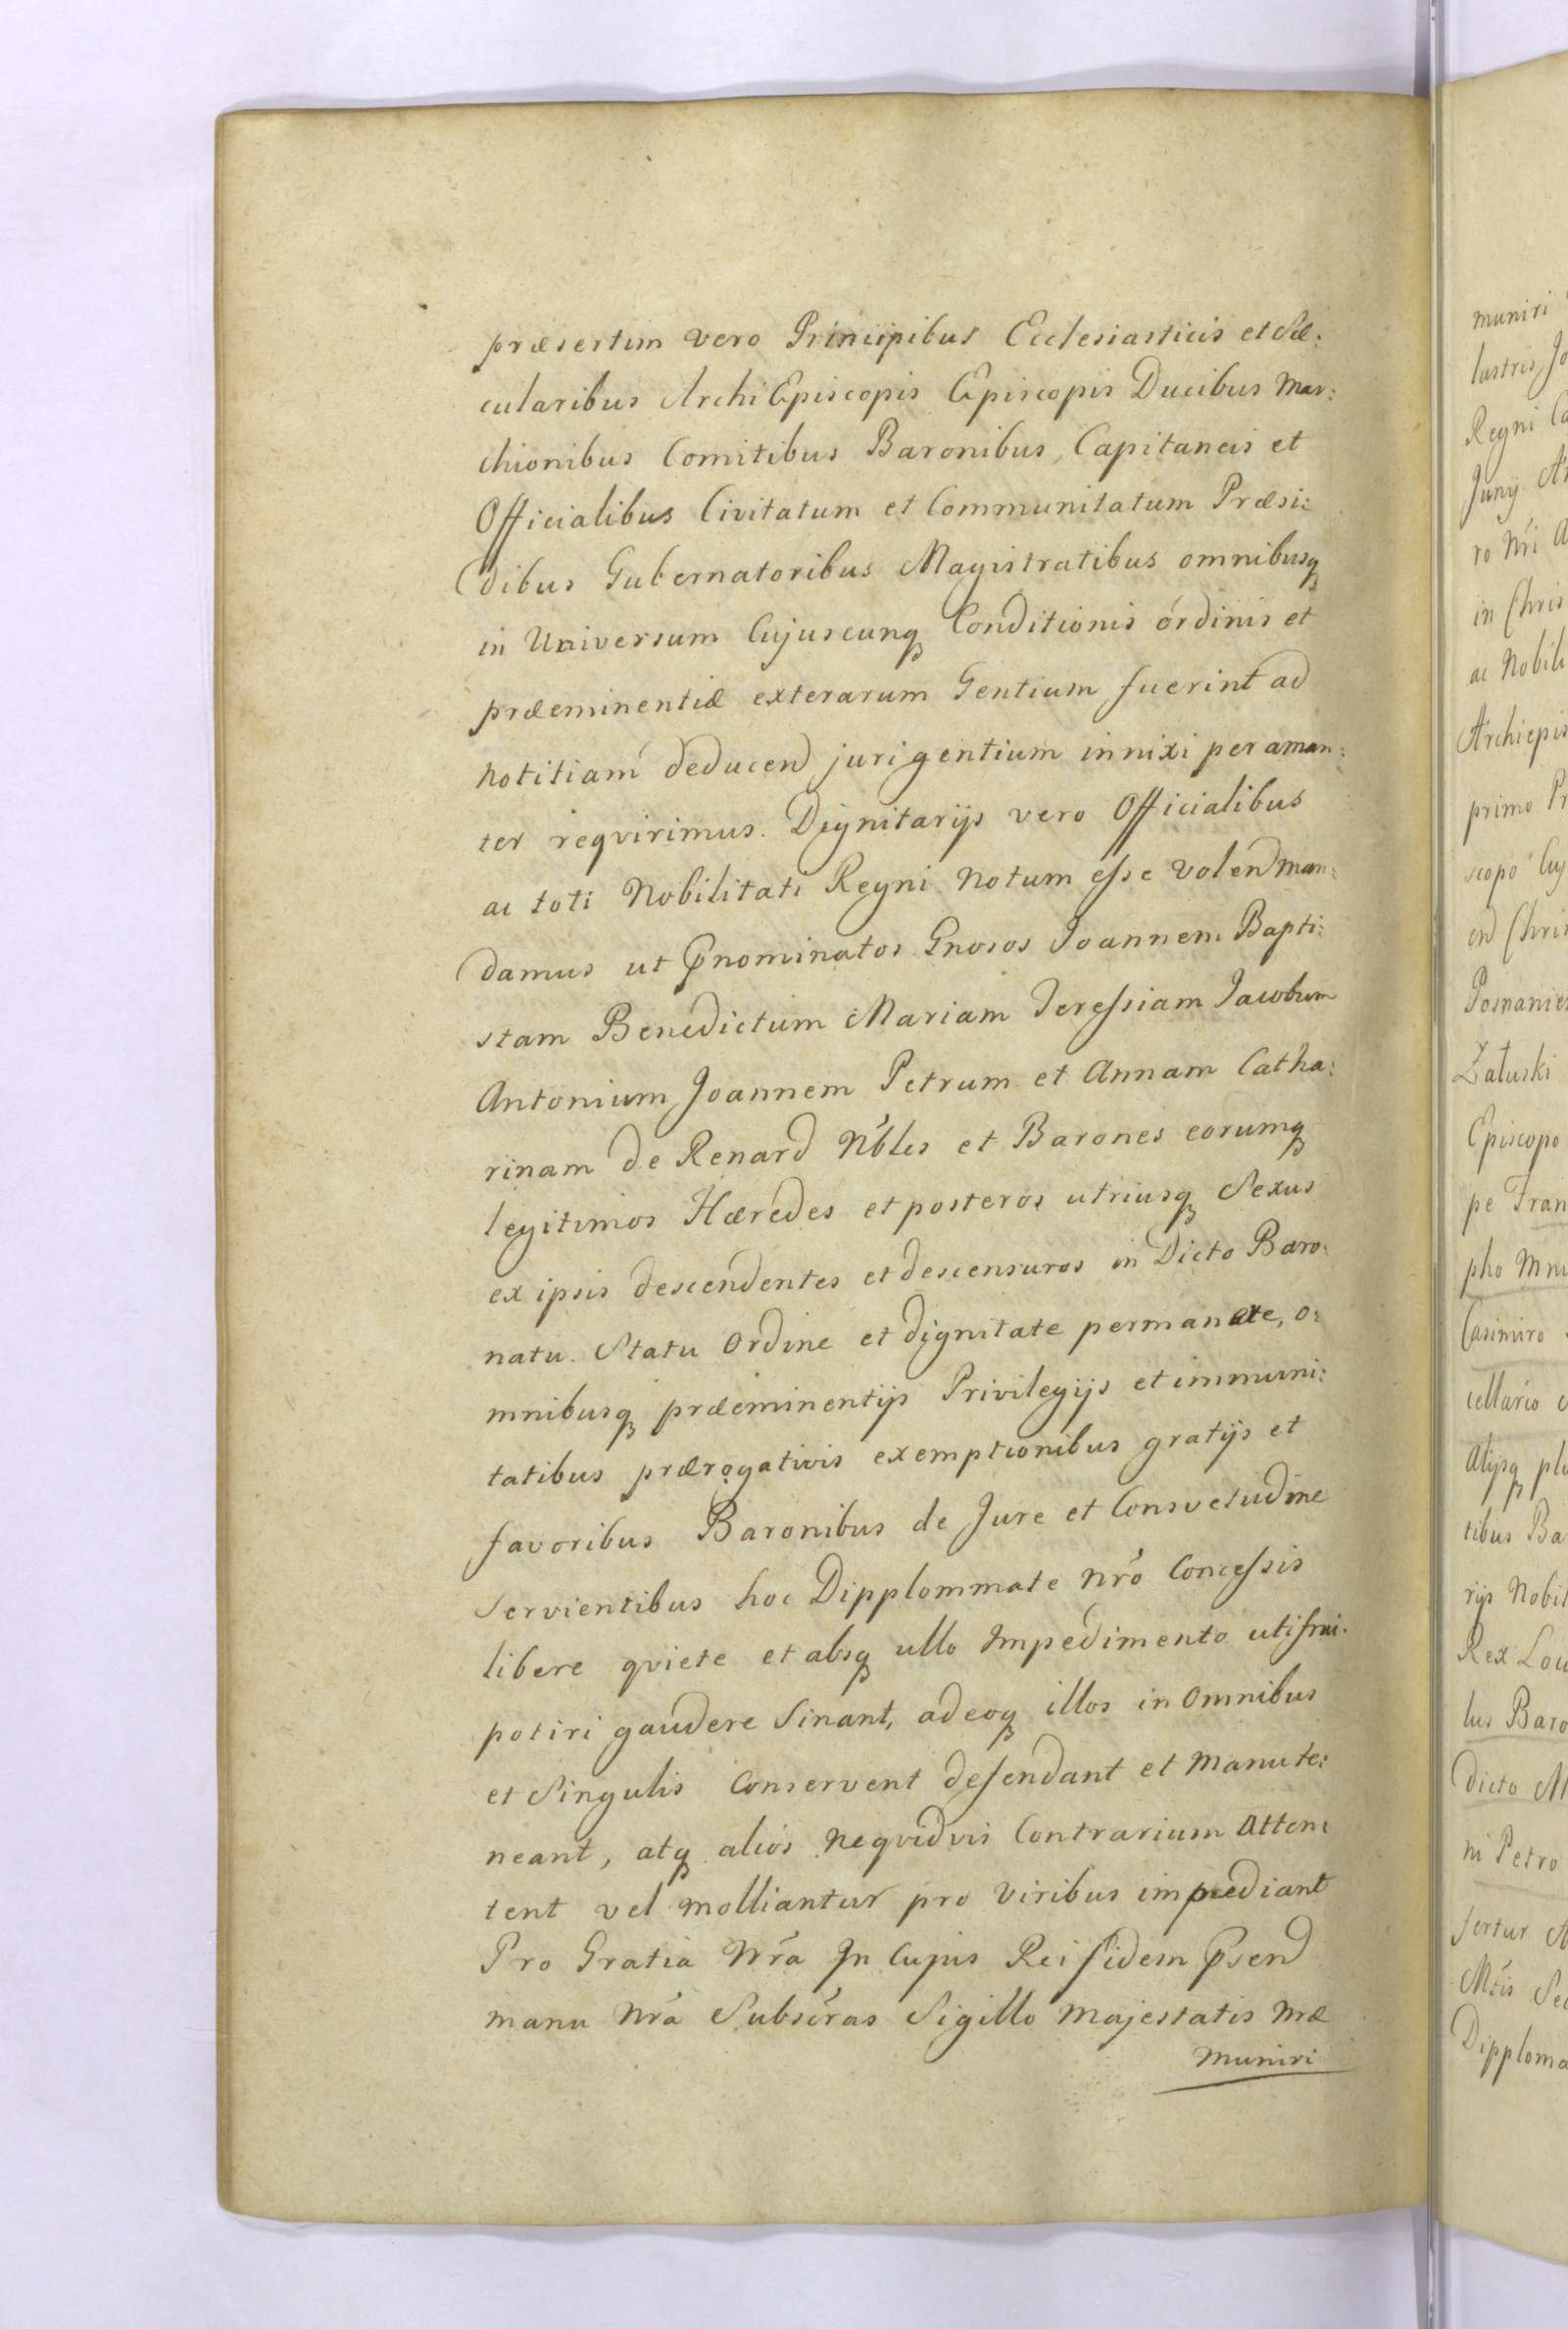 præsertim vero Principibus Ecclesiasticis et Sæ:
cularibus ArchiEpiscopis Episcopis Ducibus Mar:
chionibus Comitibus Baronibus Capitaneis et
Officialibus Civitatum et Communitatum Præsi:
dibus Gubernatoribus Magistratibus omnibusq
in Universum Cujuscunq Conditionis ordinis et
præeminentiæ exterarum Gentium fuerint ad
notitiam deducend juri gentium innixi peraman:
ter reqvirimus. Dignitarijs vero Officialibus
ac toti Nobilitati Regni Notum esse volend man:
damus ut Pnominatos Gnosos Joannem Bapti:
stam Benedictum Mariam Teressiam Jacobum
Antonium Joannem Petrum et Annam Catha:
rinam de Renard Nbles et Barones eorumq
legitimos Hæredes et posteros utriusq Sexus
ex ipsis descendentes et descensuros in Dicto Baro:
natu. Statu Ordine et dignitate permanete, o:
mnibusq præeminentijs Privilegijs et immuni:
tatibus prærogativis exemptionibus gratijs et
favoribus Baronibus de Jure et Consvetudine
Servientibus hoc Dipplommate nrõ Concessis
libere qviete et absq ullo Impedimento uti frui.
potiri gaudere Sinant, adeoq illos in Omnibus
et Singulis Conservent defendant et Manute:
neant, atq alios neqvidvis Contrarium Atten:
tent vel molliantur pro Viribus impediant
Pro Gratia Nrã In Cujus Rei fidem Psend
manu Nrã Subscras Sigillo Majestatis Nræ
Muniri
muniri
lastris Jo
Regni Ca
Junij
ro Nri
in Chris
ac Nobili
Archiepis
primo Pr
scopo Cuj
end Chris
Posnanien
Załuski
Episcopo
pe Fran
pho Mni
Casimiro
cellario
Alijsq plu
tibus Ba
rijs Nobil
Rex Lou
lus Baro
dicto M
ni Petro
fertur A
Mtis Sec
Dipploma